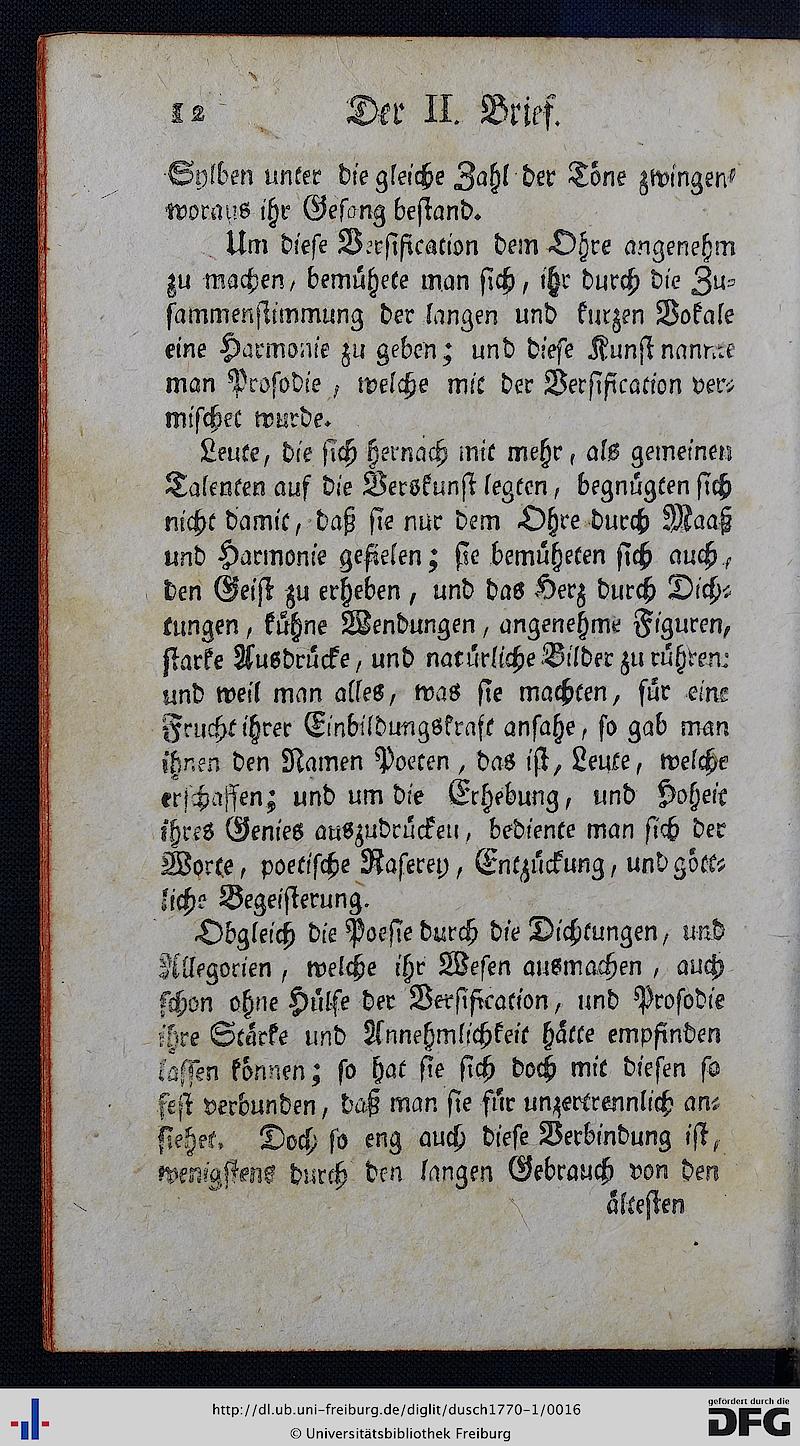 12 Der II. Brief.
Sylben unter die gleiche Zahl der Töne zwingen,
woraus ihr Gesang bestand.
Um diese Versification dem Ohre angenehm
zu machen, bemühete man sich, ihr durch die Zu-
sammenstimmung der langen und kurzen Vokale
eine Harmonie zu geben; und diese Kunst nannte
man Prosodie, welche mit der Versification ver-
mischet wurde.
Leute, die sich hernach mit mehr, als gemeinen
Talenten auf die Verskunst legten, begnügten sich
nicht damit, daß sie nur dem Ohre durch Maaß
und Harmonie gefielen; sie bemüheten sich auch,
den Geist zu erheben, und das Herz durch Dich-
tungen, kühne Wendungen, angenehme Figuren,
starke Ausdrücke, und natürliche Bilder zu rühren:
und weil man alles, was sie machten, für eine
Frucht ihrer Einbildungskraft ansahe, so gab man
ihnen den Namen Poeten, das ist, Leute, welche
erschaffen; und um die Erhebung, und Hoheit
ihres Genies auszudrücken, bediente man sich der
Worte, poetische Raserey, Entzückung, und gött-
liche Begeisterung.
Obgleich die Poesie durch die Dichtungen, und
Allegorien, welche ihr Wesen ausmachen, auch
schon ohne Hülfe der Versification, und Prosodie
ihre Stärke und Annehmlichkeit hätte empfinden
lassen können; so hat sie sich doch mit diesen so
fest verbunden, daß man sie für unzertrennlich an-
siehet. Doch so eng auch diese Verbindung ist,
wenigstens durch den langen Gebrauch von den
ältesten
http://dl.ub.uni-freiburg.de/diglit/dusch1770-1/0016
© Universitätsbibliothek Freiburg
gefördert durch die
DFG